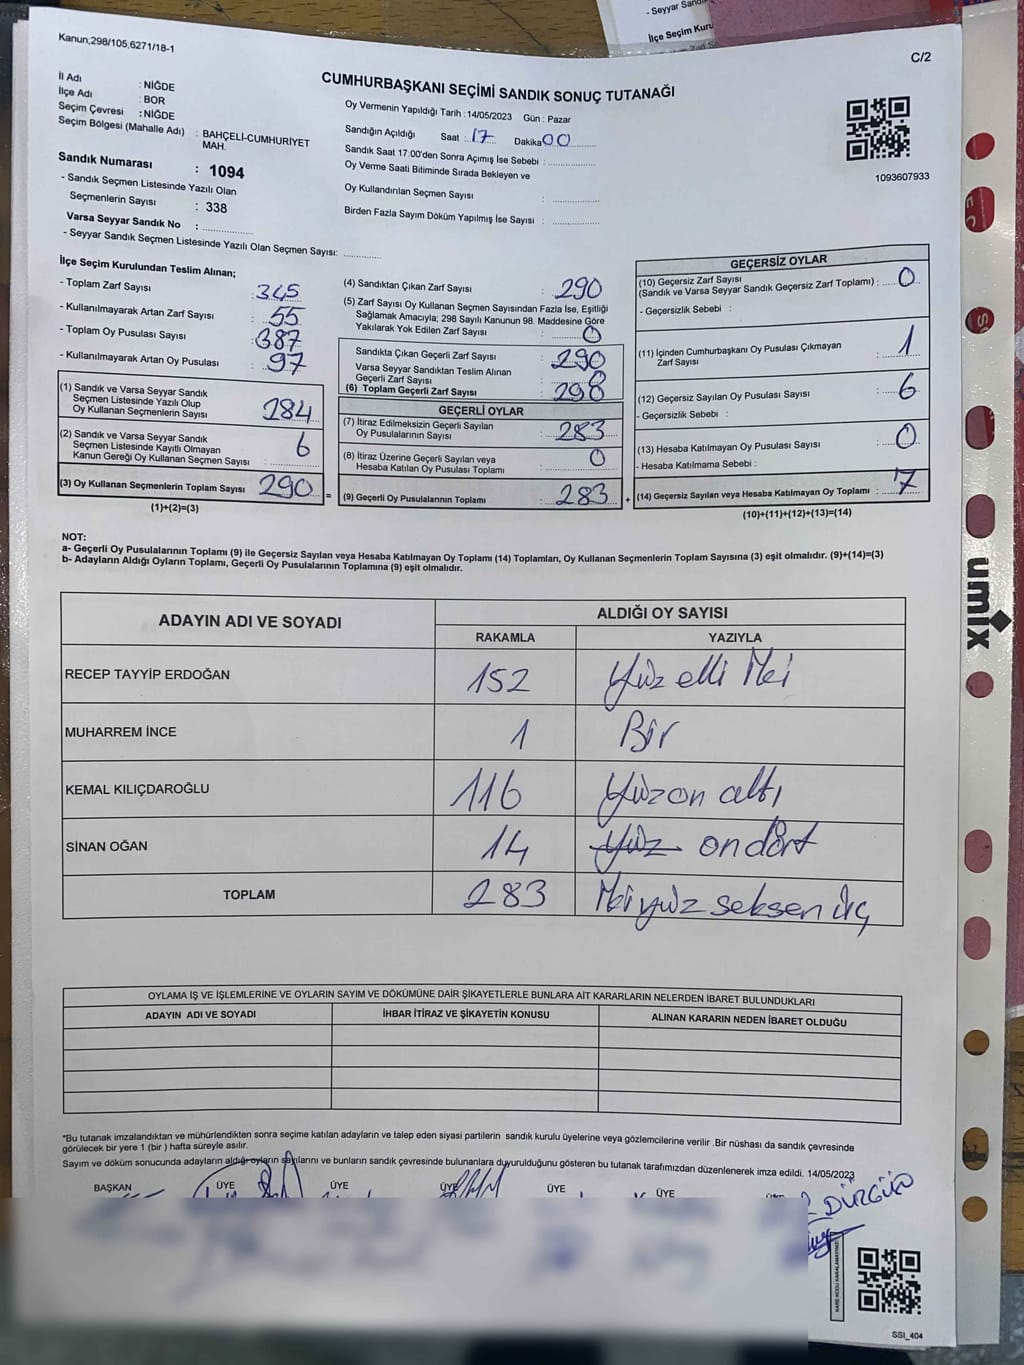 - Seyyar
İlçe Seçim Kuru
Kanun;298/105,6271/18-1
C/2
CUMHURBAŞKANI SEÇİMİ SANDIK SONUÇ TUTANAĞI
İl Adı : NİĞDE
İlçe Adı : BOR
Seçim Çevresi : NİĞDE
Seçim Bölgesi (Mahalle Adı) : BAHÇELİ-CUMHURİYET MAH.
Sandık Numarası : 1094
- Sandık Seçmen Listesinde Yazılı Olan
Seçmenlerin Sayısı : 338
Varsa Seyyar Sandık No : ..............
- Seyyar Sandık Seçmen Listesinde Yazılı Olan Seçmen Sayısı: ............
Oy Vermenin Yapıldığı Tarih : 14/05/2023 Gün : Pazar
Sandığın Açıldığı Saat : 17 Dakika 00
Sandık Saat 17:00'den Sonra Açımış İse Sebebi : ..............
Oy Verme Saati Bitiminde Sırada Bekleyen ve
Oy Kullandırılan Seçmen Sayısı : ..............
Birden Fazla Sayım Döküm Yapılmış İse Sayısı : ..............
1093607933
İlçe Seçim Kurulundan Teslim Alınan;
- Toplam Zarf Sayısı : 345
- Kullanılmayarak Artan Zarf Sayısı : 55
- Toplam Oy Pusulası Sayısı : 387
- Kullanılmayarak Artan Oy Pusulası : 97
(1) Sandık ve Varsa Seyyar Sandık
Seçmen Listesinde Yazılı Olup
Oy Kullanan Seçmenlerin Sayısı 284
(2) Sandık ve Varsa Seyyar Sandık
Seçmen Listesinde Kayıtlı Olmayan
Kanun Gereği Oy Kullanan Seçmen Sayısı 6
(3) Oy Kullanan Seçmenlerin Toplam Sayısı 290
(1)+(2)=(3)
=
(4) Sandıktan Çıkan Zarf Sayısı : 290
(5) Zarf Sayısı Oy Kullanan Seçmen Sayısından Fazla İse, Eşitliği
Sağlamak Amacıyla; 298 Sayılı Kanunun 98. Maddesine Göre
Yakılarak Yok Edilen Zarf Sayısı : 0
Sandıkta Çıkan Geçerli Zarf Sayısı : 290
Varsa Seyyar Sandıktan Teslim Alınan
Geçerli Zarf Sayısı : 0
(6) Toplam Geçerli Zarf Sayısı :
GEÇERLİ OYLAR
(7) İtiraz Edilmeksizin Geçerli Sayılan
Oy Pusulalarının Sayısı : 283
(8) İtiraz Üzerine Geçerli Sayılan veya
Hesaba Katılan Oy Pusulası Toplamı : 0
(9) Geçerli Oy Pusulalarının Toplamı : 283
+
GEÇERSİZ OYLAR
(10) Geçersiz Zarf Sayısı
(Sandık ve Varsa Seyyar Sandık Geçersiz Zarf Toplamı) : 0
- Geçersizlik Sebebi :
(11) İçinden Cumhurbaşkanı Oy Pusulası Çıkmayan
Zarf Sayısı : 1
(12) Geçersiz Sayılan Oy Pusulası Sayısı : 6
- Geçersizlik Sebebi :
(13) Hesaba Katılmayan Oy Pusulası Sayısı : 0
- Hesaba Katılmama Sebebi :
(14) Geçersiz Sayılan veya Hesaba Katılmayan Oy Toplamı : 7
(10)+(11)+(12)+(13)=(14)
NOT:
a- Geçerli Oy Pusulalarının Toplamı (9) ile Geçersiz Sayılan veya Hesaba Katılmayan Oy Toplamı (14) Toplamları, Oy Kullanan Seçmenlerin Toplam Sayısına (3) eşit olmalıdır. (9)+(14)=(3)
b- Adayların Aldığı Oyların Toplamı, Geçerli Oy Pusulalarının Toplamına (9) eşit olmalıdır.
ADAYIN ADI VE SOYADI ALDIĞI OY SAYISI
RAKAMLA YAZIYLA
RECEP TAYYİP ERDOĞAN 152 Yüz elli iki
MUHARREM İNCE 1 Bir
KEMAL KILIÇDAROĞLU 116 Yüzon altı
SİNAN OĞAN 14 Yüz ondört
TOPLAM 283 İkiyüz seksen üç
OYLAMA İŞ VE İŞLEMLERİNE VE OYLARIN SAYIM VE DÖKÜMÜNE DAİR ŞİKAYETLERLE BUNLARA AİT KARARLARIN NELERDEN İBARET BULUNDUKLARI
ADAYIN ADI VE SOYADI İHBAR İTİRAZ VE ŞİKAYETİN KONUSU ALINAN KARARIN NEDEN İBARET OLDUĞU
*Bu tutanak imzalandıktan ve mühürlendikten sonra seçime katılan adayların ve talep eden siyasi partilerin sandık kurulu üyelerine veya gözlemcilerine verilir .Bir nüshası da sandık çevresinde
görülecek bir yere 1 (bir ) hafta süreyle asılır.
Sayım ve döküm sonucunda adayların aldığı oyların sayılarını ve bunların sandık çevresinde bulunanlara duyurulduğunu gösteren bu tutanak tarafımızdan düzenlenerek imza edildi. 14/05/2023
BAŞKAN ÜYE ÜYE ÜYE ÜYE ÜYE
DÜRGÜD
SSI_404
umix